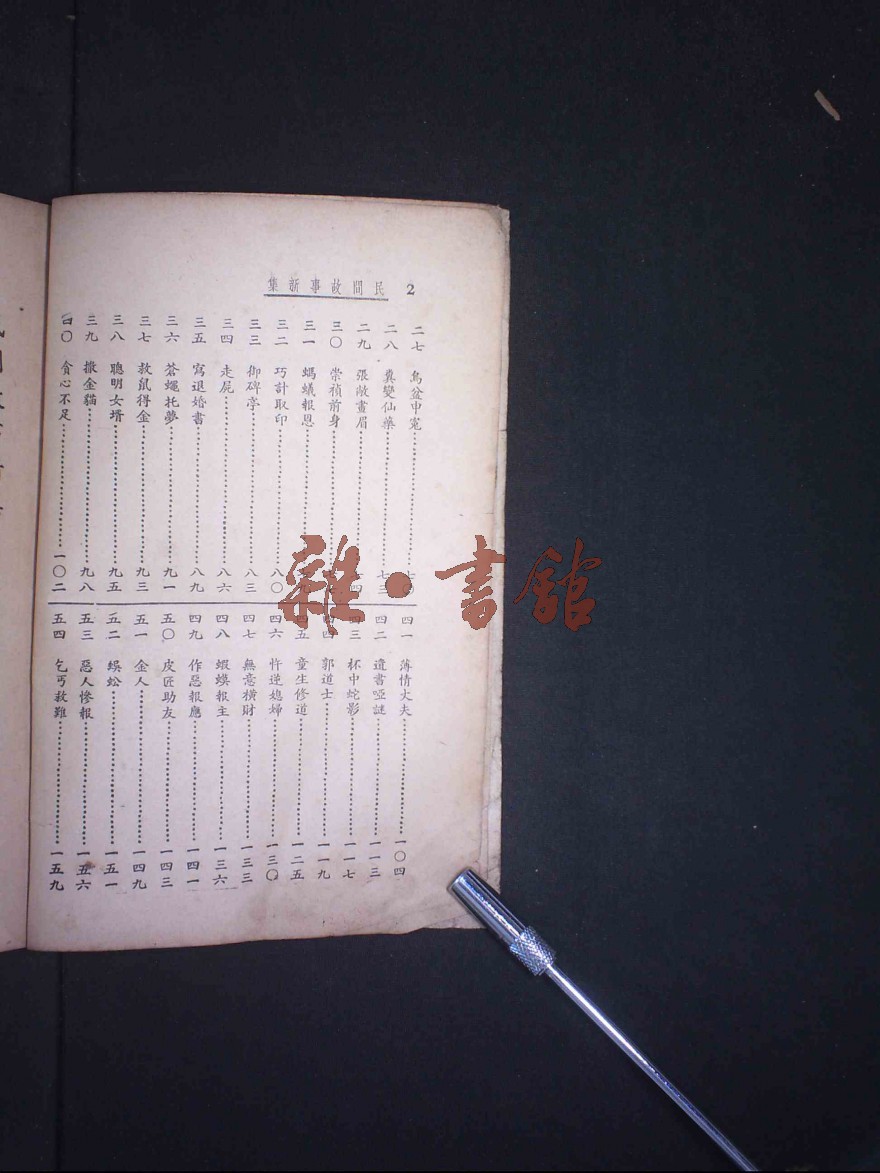 2 民間故事新集
二七 烏盆申寃
二八 糞變仙藥 七三
二九 張敞畫眉
三〇 崇禎前身
三一 螞蟻報恩
三二 巧計取印 八〇
三三 御碑亭 八三
三四 走屍 八六
三五 寫退婚書 八九
三六 蒼蠅托夢 九一
三七 救鼠得金 九三
三八 聰明女壻 九五
三九 撒金貓 九八
四〇 貪心不足 一〇二
四一 薄情丈夫 一〇四
四二 遺書啞謎 一一三
四三 杯中蛇影 一一七
四四 郭道士 一一九
四五 童生修道 一二五
四六 忤逆媳婦 一三〇
四七 無意橫財 一三三
四八 蝦蟆報主 一三六
四九 作惡報應 一四一
五〇 皮匠助友 一四三
五一 金人 一四九
五二 蜈蚣 一五一
五三 惡人慘報 一五六
五四 乞丐救難 一五九
雜·書館